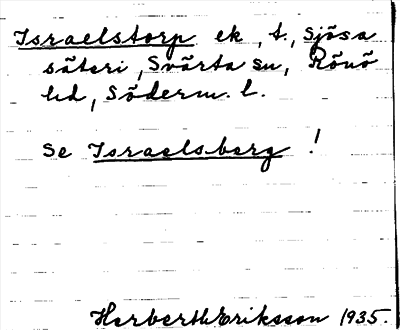 Israelstorp ek, t., Sjösa
säteri, Svärta sn, Rönö
hd, Söderm. l.
Se Israelsberg !
Herberth Eriksson 1935.